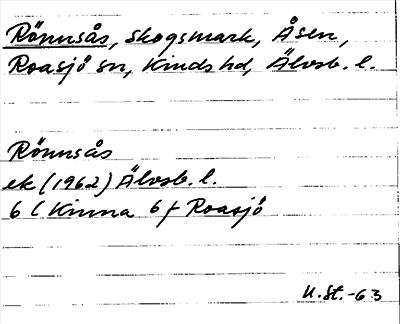 Rönnsås, skogsmark, Åsen,
Roasjö sn, Kinds hd, Älvsb. l.
Rönnsås
ek (1962) Älvsb. l.
6 l Kinna 6 f Roasjö
U. St. -63